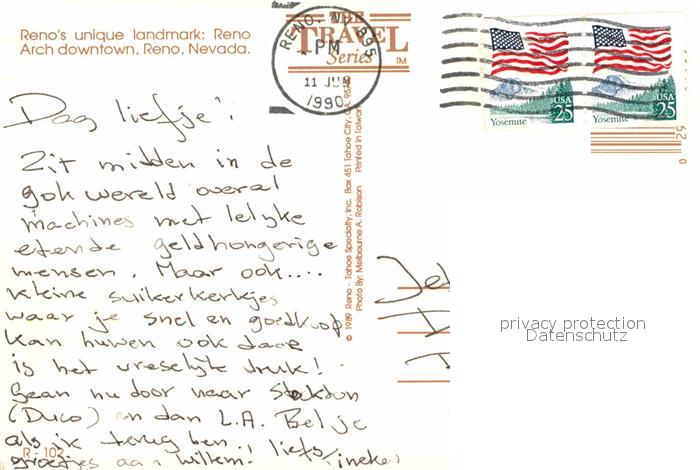 Reno's unique landmark: Reno
Arch downtown, Reno, Nevada.
THE
TRAVEL
Series
TM
RENO, NV 895
PM
11 JUN
1990
Yosemite
USA
25
Yosemite
USA
25
0 29
© 1989 Reno - Tahoe Specialty, Inc. Box 451 Tahoe City, CA. 95730
Photo By: Melbourne A. Robison Printed in Taiwan
Dag liefje!
Zit midden in de
gok wereld overal
machines met lelijke
etende geldhongerige
mensen. Maar ook....
kleine suikerkerkjes
waar je snel en goedkoop
kan huwen ook daar
is het vreselijk druk!
Gaan nu door naar Stockton
(Duco) en dan L.A. Bel je
als ik terug ben.
groetjes aan Willem! liefs, Ineke
R-102
privacy protection
Datenschutz